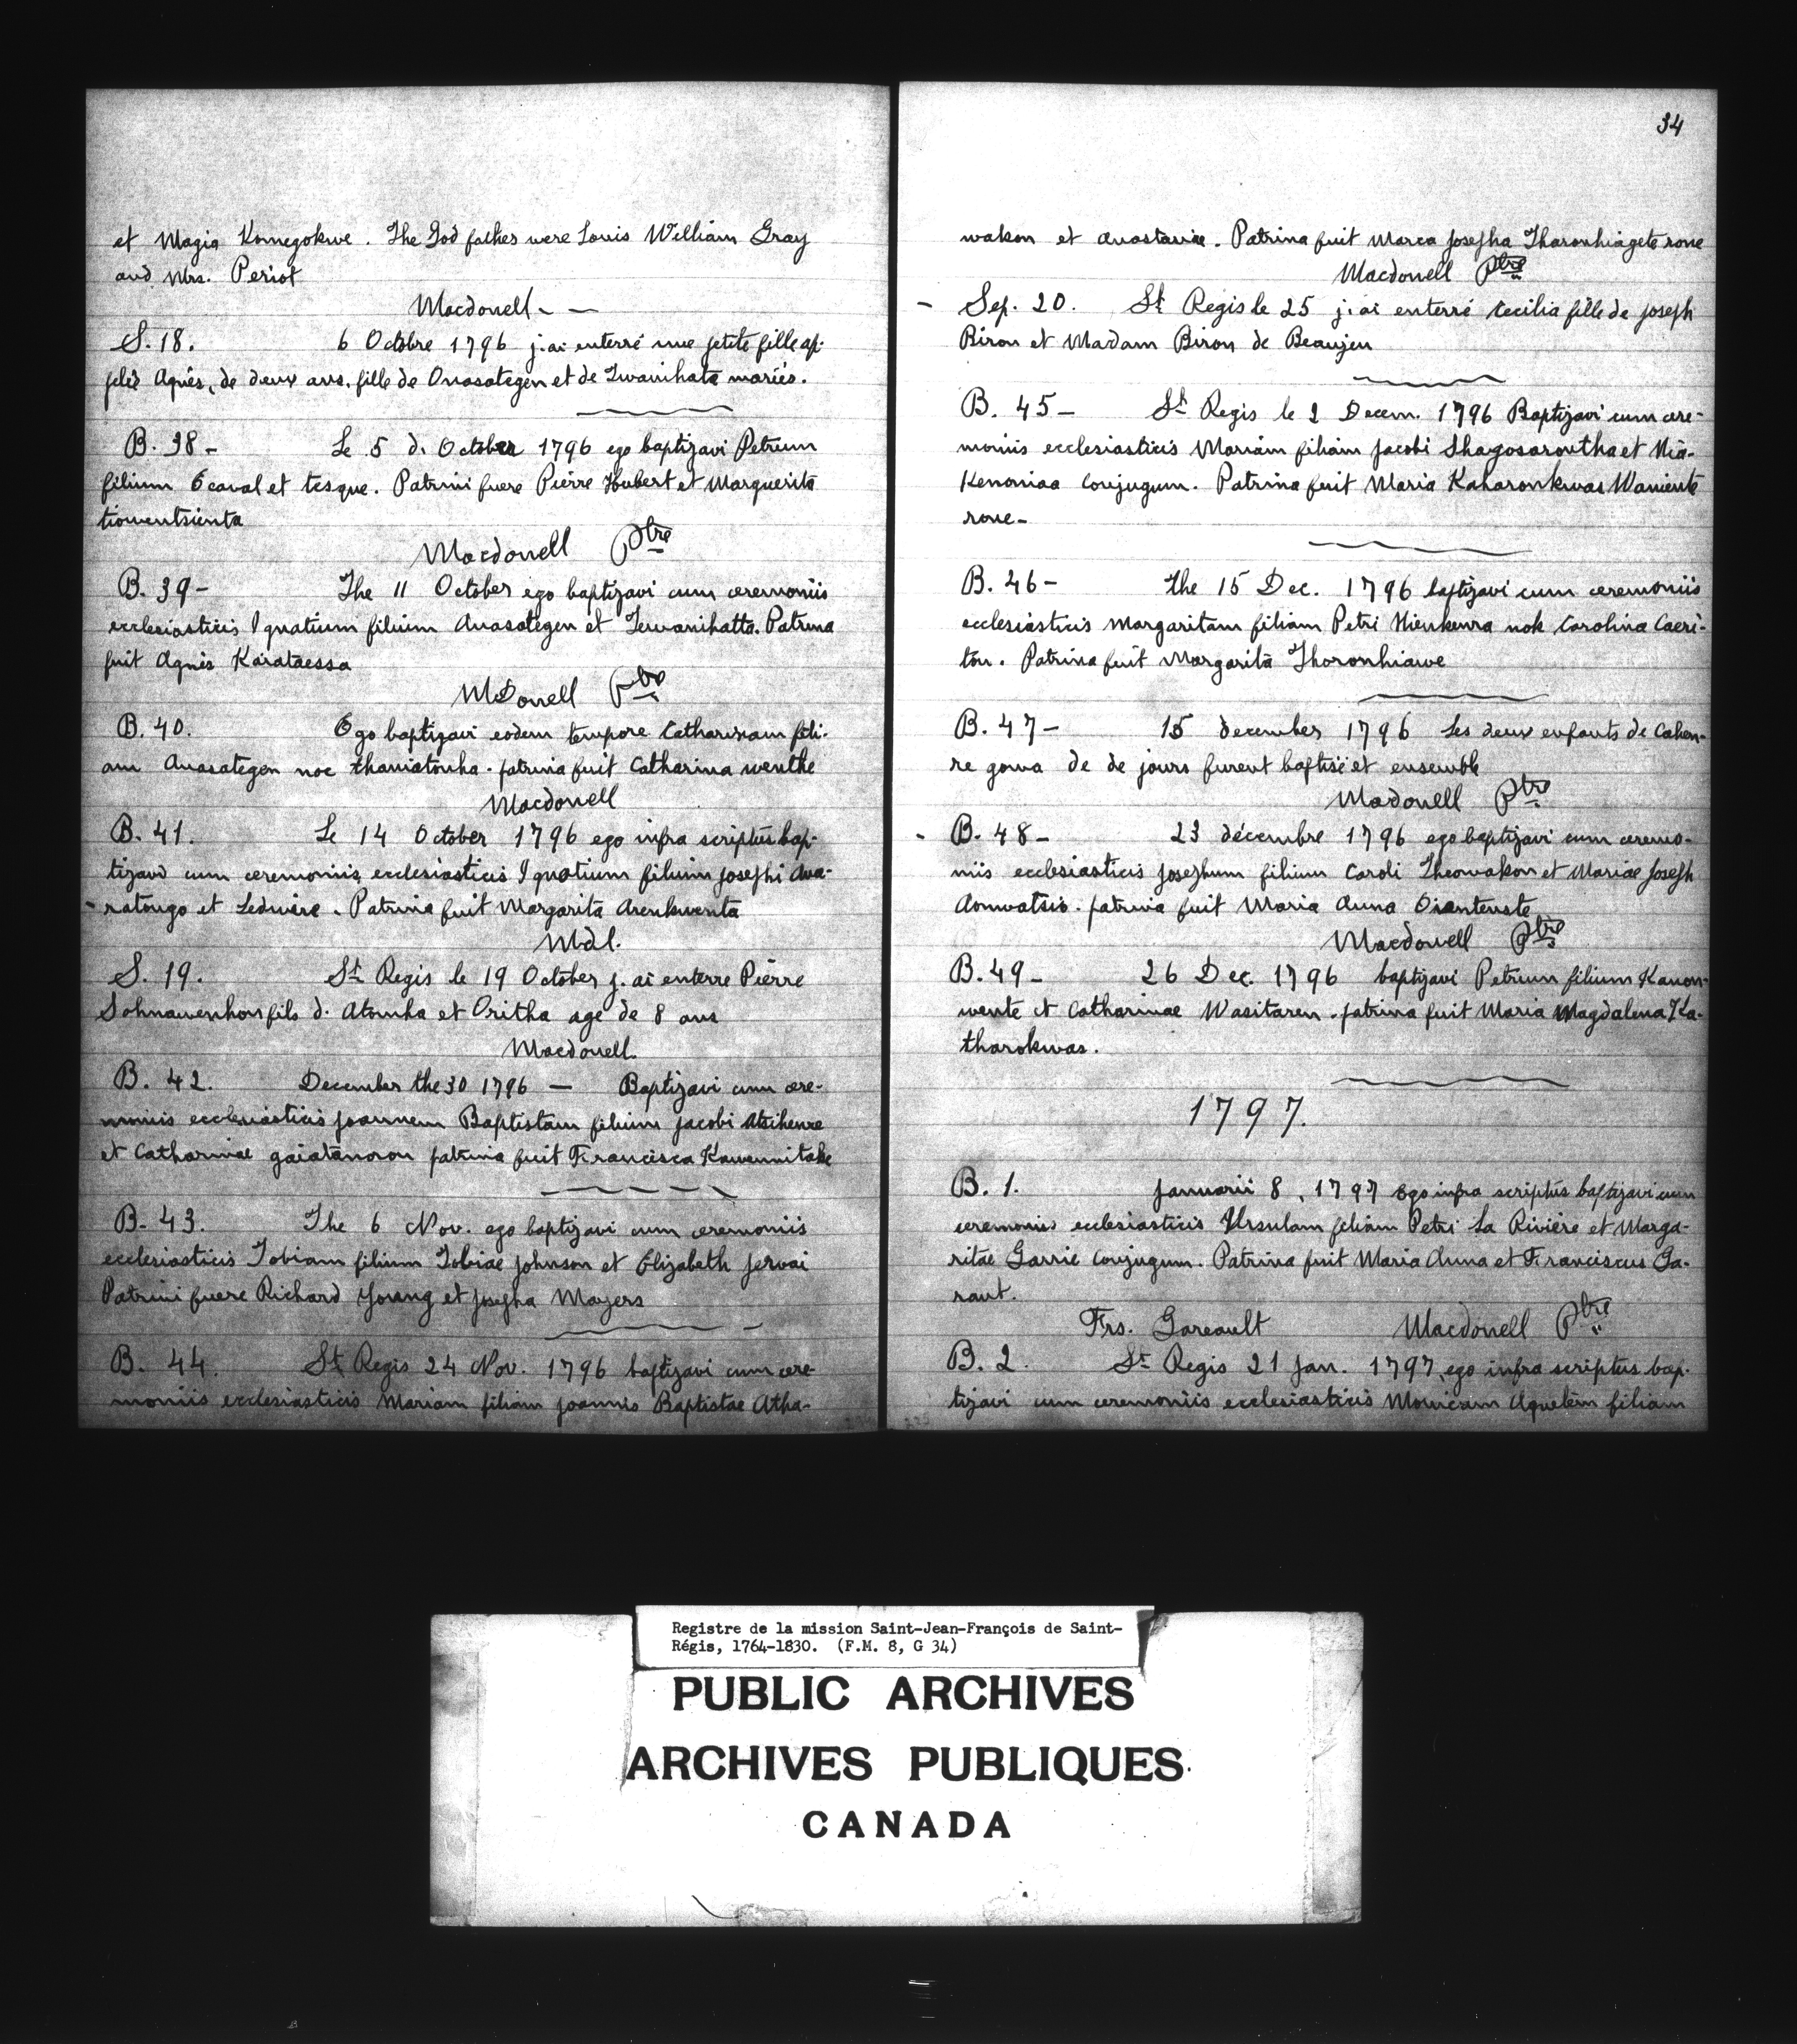 et Magia Konegokwe. The God father were Louis William Gray
and Mrs. Periot
Macdonell - —
S. 18. 6 Octobre 1796 j. ai enterré une petite fille ap-
pelés Agnès, de deux ans. fille de Onasategen et de Twanihata mariés.
B. 38 - Le 5 d. October 1796 ego baptizavi Petrum
filium Ecaval et tesque. Patrini fuere Pierre Hubert et Marguerita
tiowentsienta
Macdonell Ptre
B. 39 - The 11 October ego baptizavi cum ceremoniis
ecclesiasticis Ignatium filium Anasategen et Tewanihatta. Patrina
fuit Agnès Karataessa
McDonell Ptre
B. 40. Ego baptizavi eodem tempore Catharinam fili-
am Anasategen noc thaniatonha. patrina fuit Catharina wenthe
Macdonell
B. 41. Le 14 October 1796 ego infra scriptus bap-
tizavd cum ceremoniis ecclesiasticis Ignatium filium Josephi Ana-
ratongo et Ledwire. Patrina fuit Margarita Arenkwenta
Mdl.
S. 19. St Regis le 19 October j. ai enterre Pierre
Sohnawenhon fils d. Atonha et Oritha age de 8 ans
Macdonell.
B. 42. December the 30 1796 — Baptizavi cum cere-
moniis ecclesiasticis Joannem Baptistam filium Jacobi Atsihenre
et Catharinae gaiatanoron patrina fuit Francisca Kawennitake
B. 43. The 6 Nov. ego baptizavi cum ceremoniis
ecclesiasticis Tobiam filium Tobiae Johnson et Elizabeth Jervai
Patrini fuere Richard Young et Josepha Mayers
B. 44. St Regis 24 Nov. 1796 baptizavi cum cere-
moniis ecclesiasticis Mariam filiam Joannis Baptistae Atha-
34
wakon et Anastasiae. Patrina fuit Marca Josepha Tharonhiagete rone
Macdonell Ptre
- Sep. 20. St Regis le 25 j. ai enterré Cecilia fille de Joseph
Biron et Madam Biron de Beaujeu
B. 45 - St Regis le 2 Decem. 1796 Baptizavi cum cere-
moniis ecclesiasticis Mariam filiam Jacobi Shagosaroutha et Nia-
Kenoniaa Conjugum. Patrina fuit Maria Kaharonkwas Waniente
rone -
B. 46 - The 15 Dec. 1796 baptizavi cum ceremoniis
ecclesiasticis Margaritam filiam Petri Nienkenra nok Carolina Caeri-
ton. Patrina fuit Margarita Thoronhiawe
B. 47 - 15 december 1796 Les deux enfants de Cahen-
re gowa de de jours furent baptisé et ensemble
Madonell Ptre
- B. 48 - 23 décembre 1796 ego baptizavi cum ceremo-
niis ecclesiasticis Josephum filium Caroli Theowakon et Mariae Joseph
Aonwatsio. patrina fuit Maria Anna Oiantenste
Macdonell Ptre
B. 49 - 26 Dec. 1796 baptizavi Petrum filium Kanon-
wente et Catharinae Wasitaren. patrina fuit Maria Magdalena Ka-
tharokwas.
1797.
B. 1. Januarii 8, 1797 Ego infra scriptus baptizavi cum
ceremoniis ecclesiasticis Ursulam filiam Petri La Rivière et Marga-
ritae Garrie Conjugum. Patrina fuit Maria Anna et Franciscus Ga-
raut.
Frs. Gareault Macdonell Ptre
B. 2. St Regis 21 Jan. 1797, ego infra scriptus bap-
tizavi cum ceremoniis ecclesiasticis Monicam Aquetem filiam
Registre de la mission Saint-Jean-François de Saint-
Régis, 1764-1830. (F.M. 8, G 34)
PUBLIC ARCHIVES
ARCHIVES PUBLIQUES
CANADA